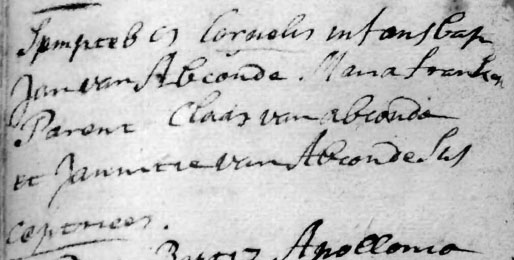 7pmpceb is Cornelis infans bap
Jan van Abconde. Maria Franken
Parent Claas van abconde
et Jannetie van Abconde Sus
ceptrices.
Apollonia